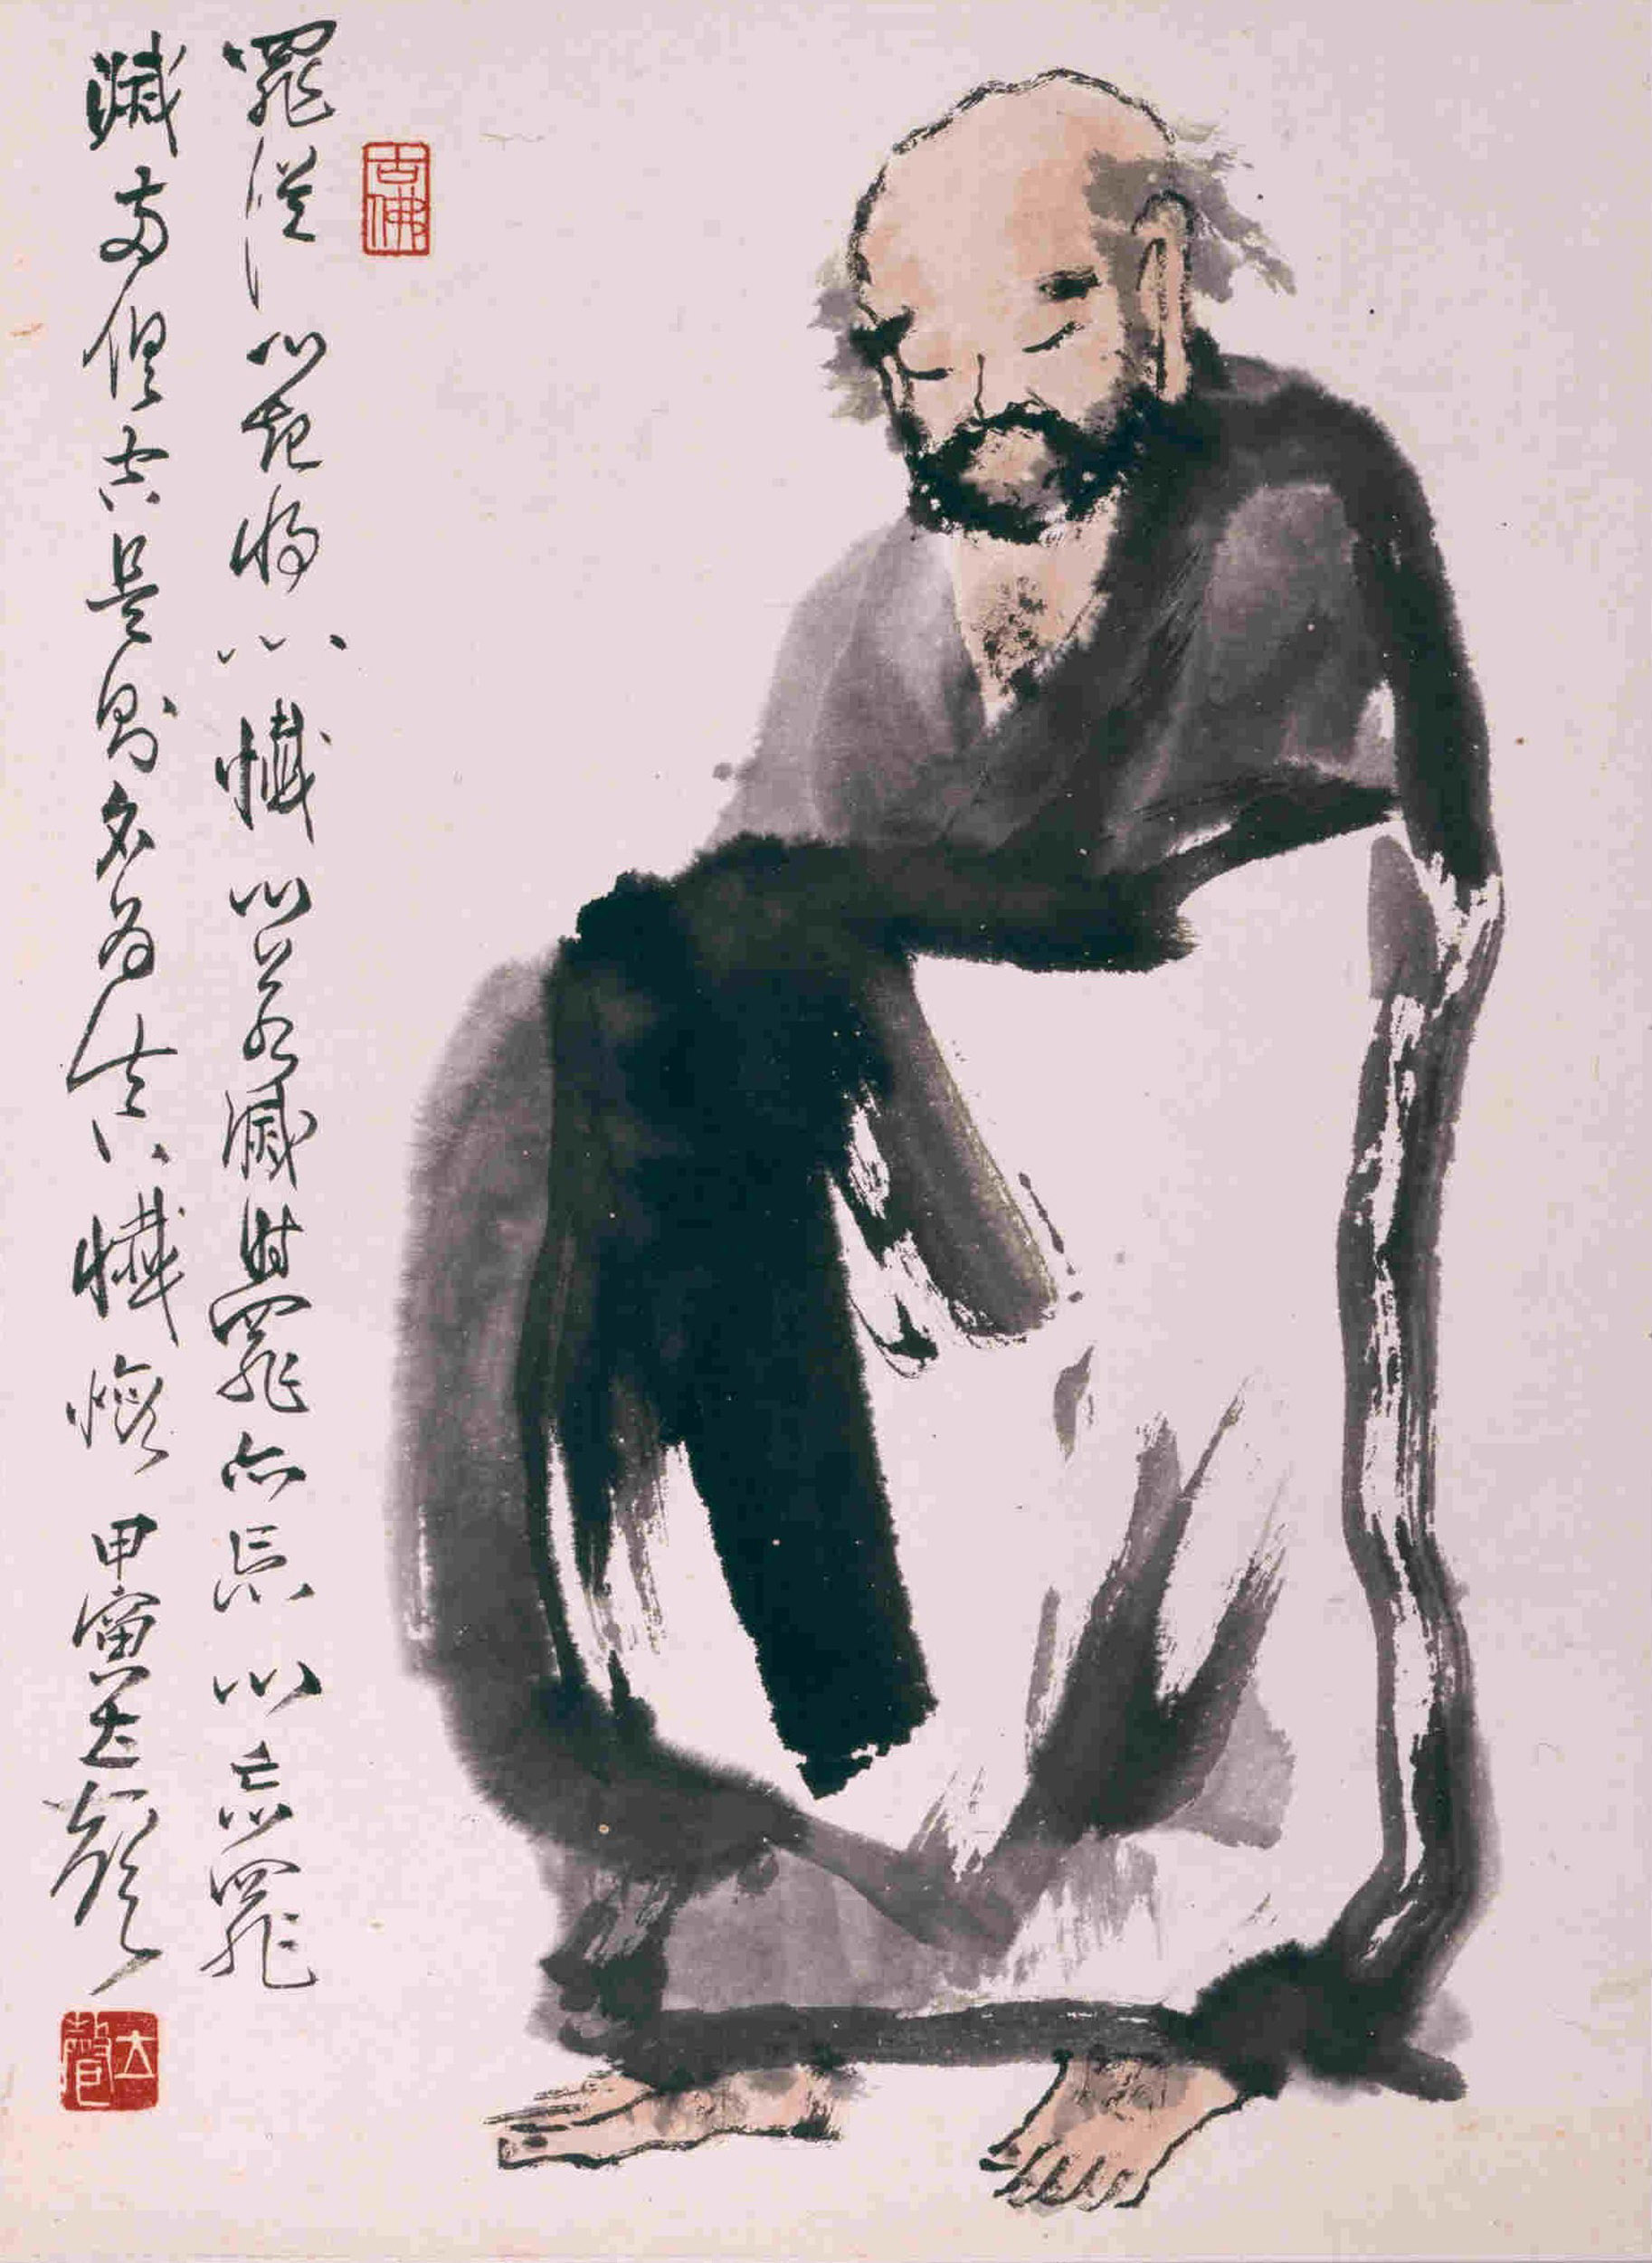 古佛
罪從心起將心懺心若滅時罪亦忘心忘罪
滅兩俱空是則名為真懺悔 甲寅 大